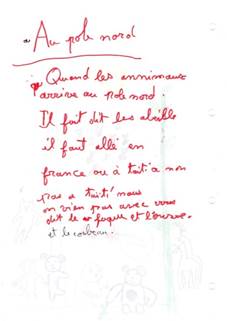 Au pole nord
Quand les annimaux
arrive au pole nord.
Il fait dit les abeille
il faut allé en
france ou à taiti a non
pas a taiti nous
on vien pas avec vous
dit le foque et l'ourse.
et le corbeau.